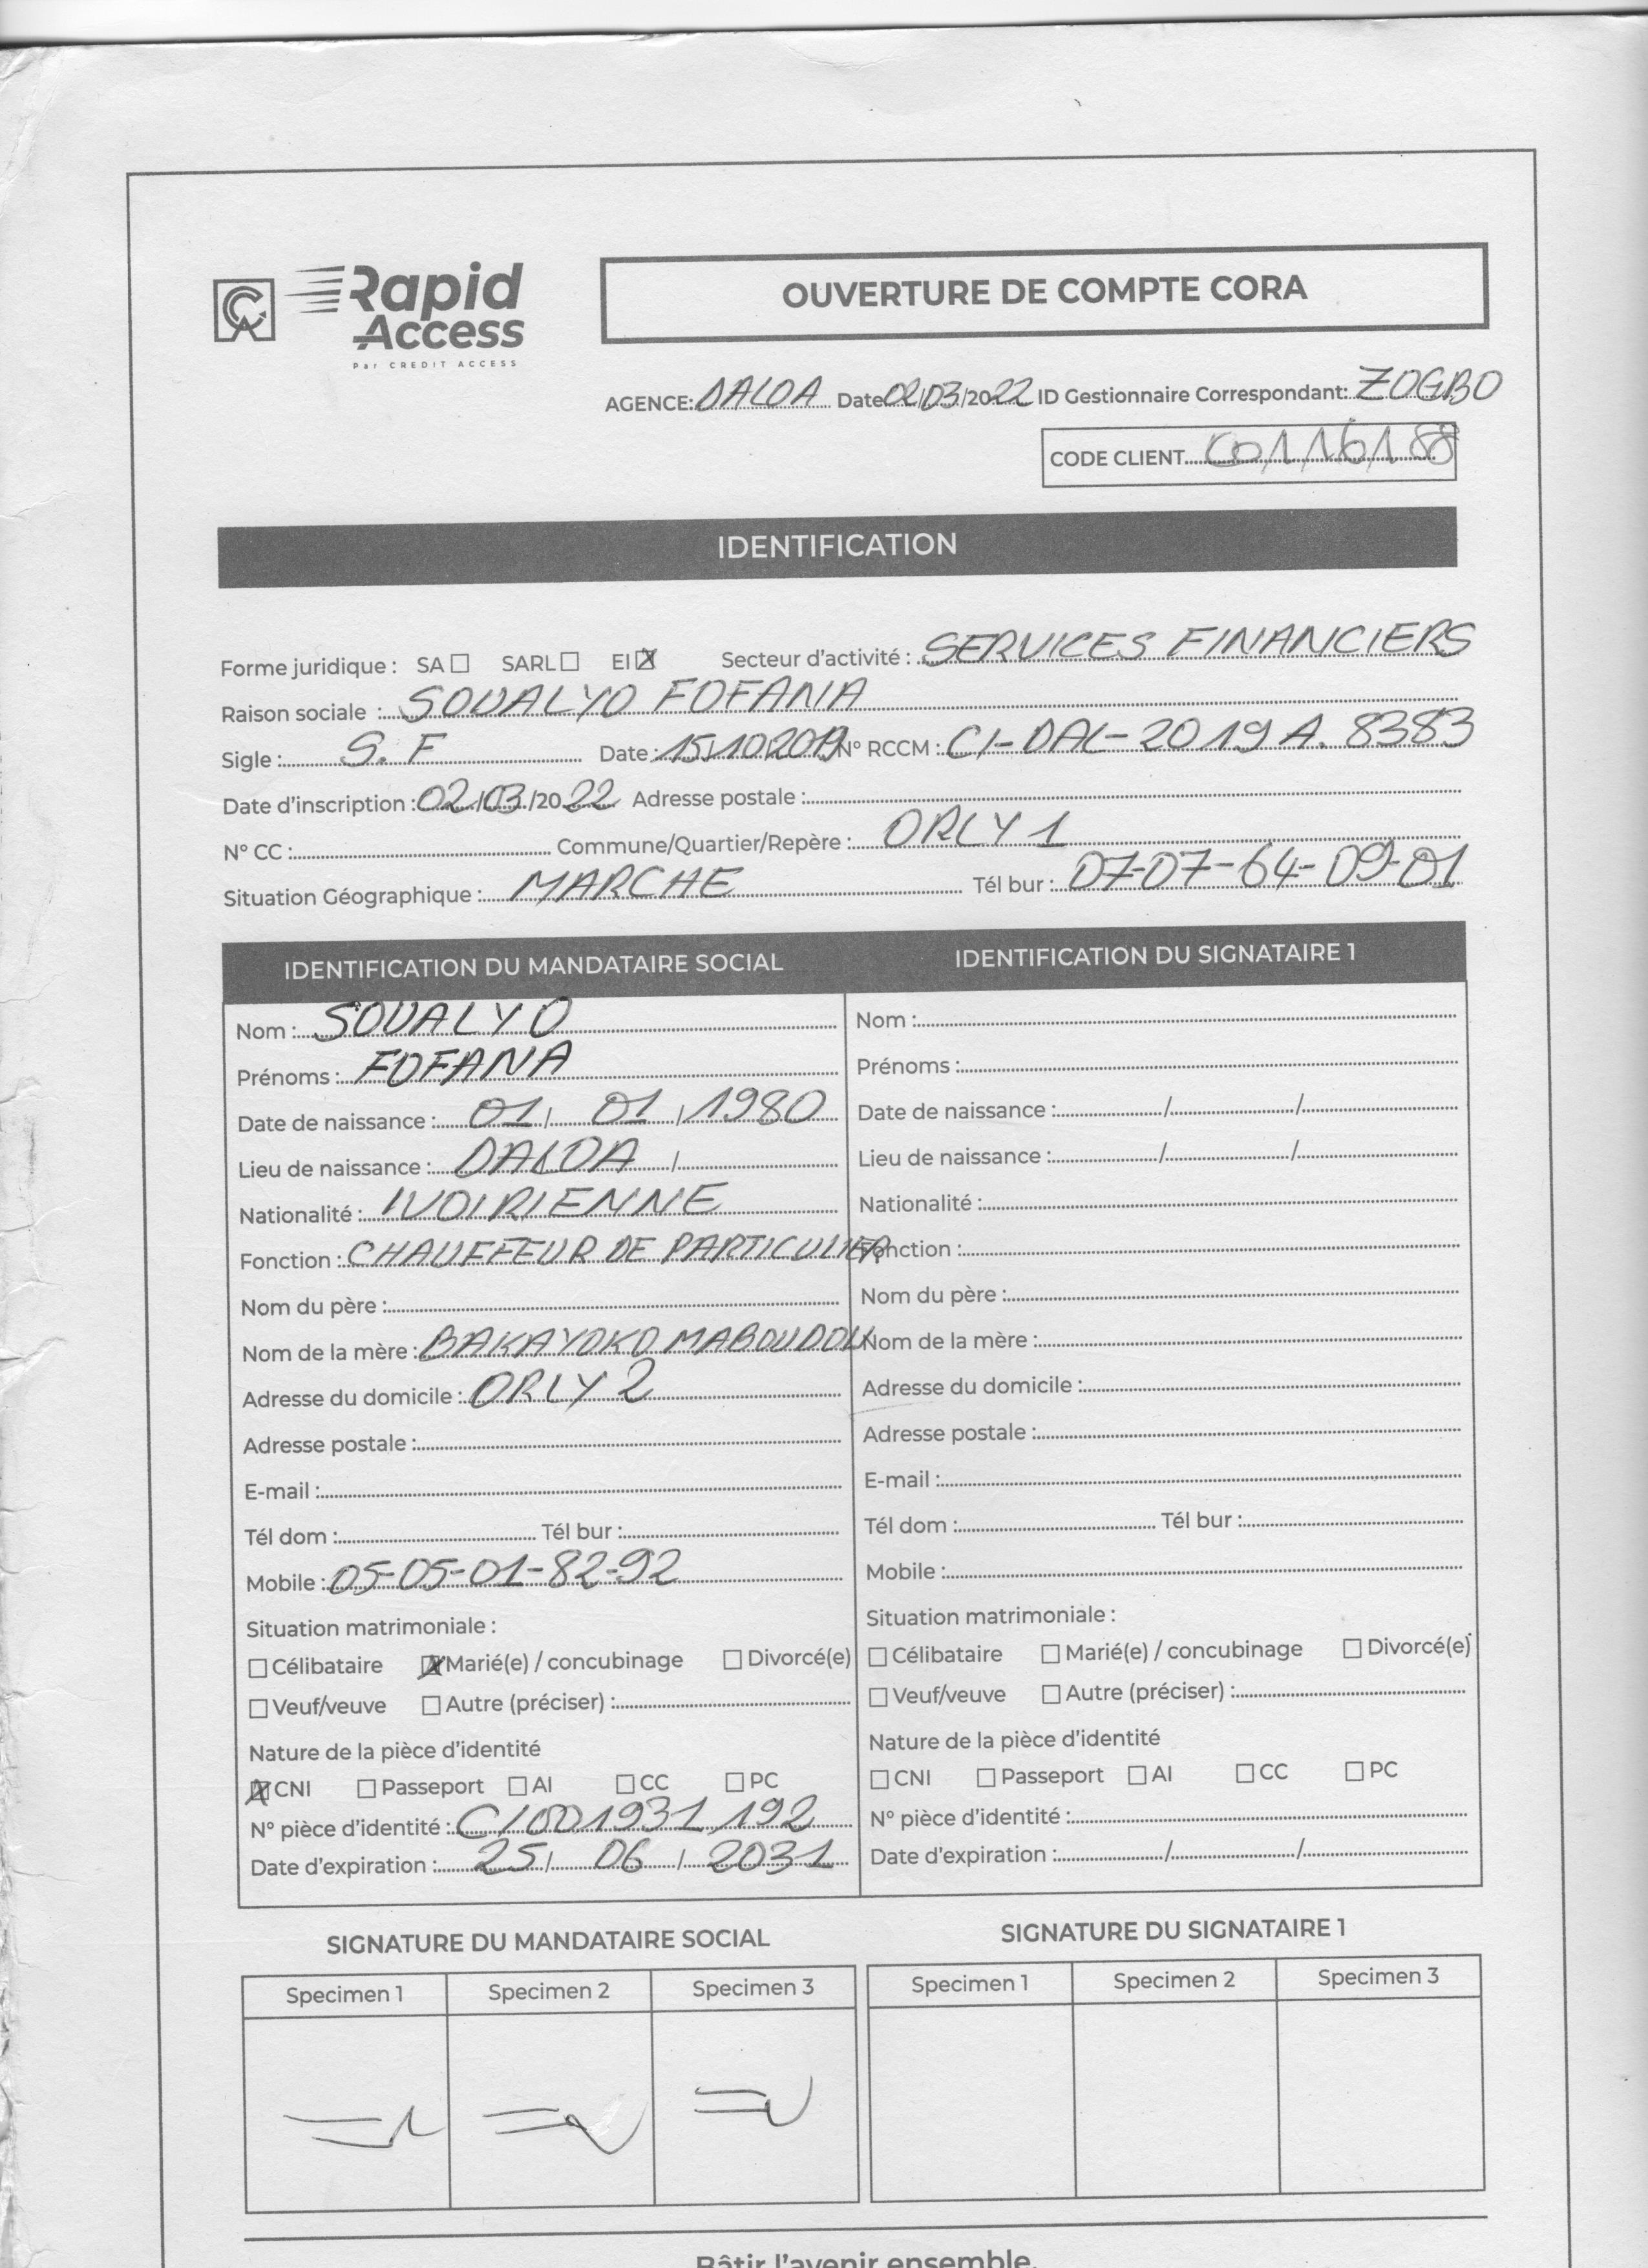 Rapid Access
Par CREDIT ACCESS
OUVERTURE DE COMPTE CORA
AGENCE: DALOA Date 02/03/2022 ID Gestionnaire Correspondant: ZOGBO
CODE CLIENT
IDENTIFICATION
Forme juridique : SA ☐ SARL ☐ EI ☒ Secteur d'activité : SERVICES FINANCIERS
Raison sociale : SOUALYO FOFANA
Sigle : S. F Date : 15/10/2019 N° RCCM : CI-DAL-2019 A. 8383
Date d'inscription : 02/03/2022 Adresse postale :
N° CC : Commune/Quartier/Repère : ORLY 1
Situation Géographique : MARCHE Tél bur : 07-07-64-09-01
IDENTIFICATION DU MANDATAIRE SOCIAL
Nom : SOUALYO
Prénoms : FOFANA
Date de naissance : 01/ 01 /1980
Lieu de naissance : DALOA /
Nationalité : IVOIRIENNE
Fonction : CHAUFFEUR DE PARTICULIER
Nom du père :
Nom de la mère : BAKAYOKO MABOUDOU
Adresse du domicile : ORLY 2
Adresse postale :
E-mail :
Tél dom : Tél bur :
Mobile : 05-05-01-82-92
Situation matrimoniale :
☐ Célibataire ☒ Marié(e) / concubinage ☐ Divorcé(e)
☐ Veuf/veuve ☐ Autre (préciser) :
Nature de la pièce d'identité
☒ CNI ☐ Passeport ☐ AI ☐ CC ☐ PC
N° pièce d'identité : CI001931192
Date d'expiration : 25/ 06 / 2031
IDENTIFICATION DU SIGNATAIRE 1
Nom :
Prénoms :
Date de naissance : / /
Lieu de naissance : / /
Nationalité :
Fonction :
Nom du père :
Nom de la mère :
Adresse du domicile :
Adresse postale :
E-mail :
Tél dom : Tél bur :
Mobile :
Situation matrimoniale :
☐ Célibataire ☐ Marié(e) / concubinage ☐ Divorcé(e)
☐ Veuf/veuve ☐ Autre (préciser) :
Nature de la pièce d'identité
☐ CNI ☐ Passeport ☐ AI ☐ CC ☐ PC
N° pièce d'identité :
Date d'expiration : / /
SIGNATURE DU MANDATAIRE SOCIAL
Specimen 1 Specimen 2 Specimen 3
SIGNATURE DU SIGNATAIRE 1
Specimen 1 Specimen 2 Specimen 3
Bâtir l'avenir ensemble.